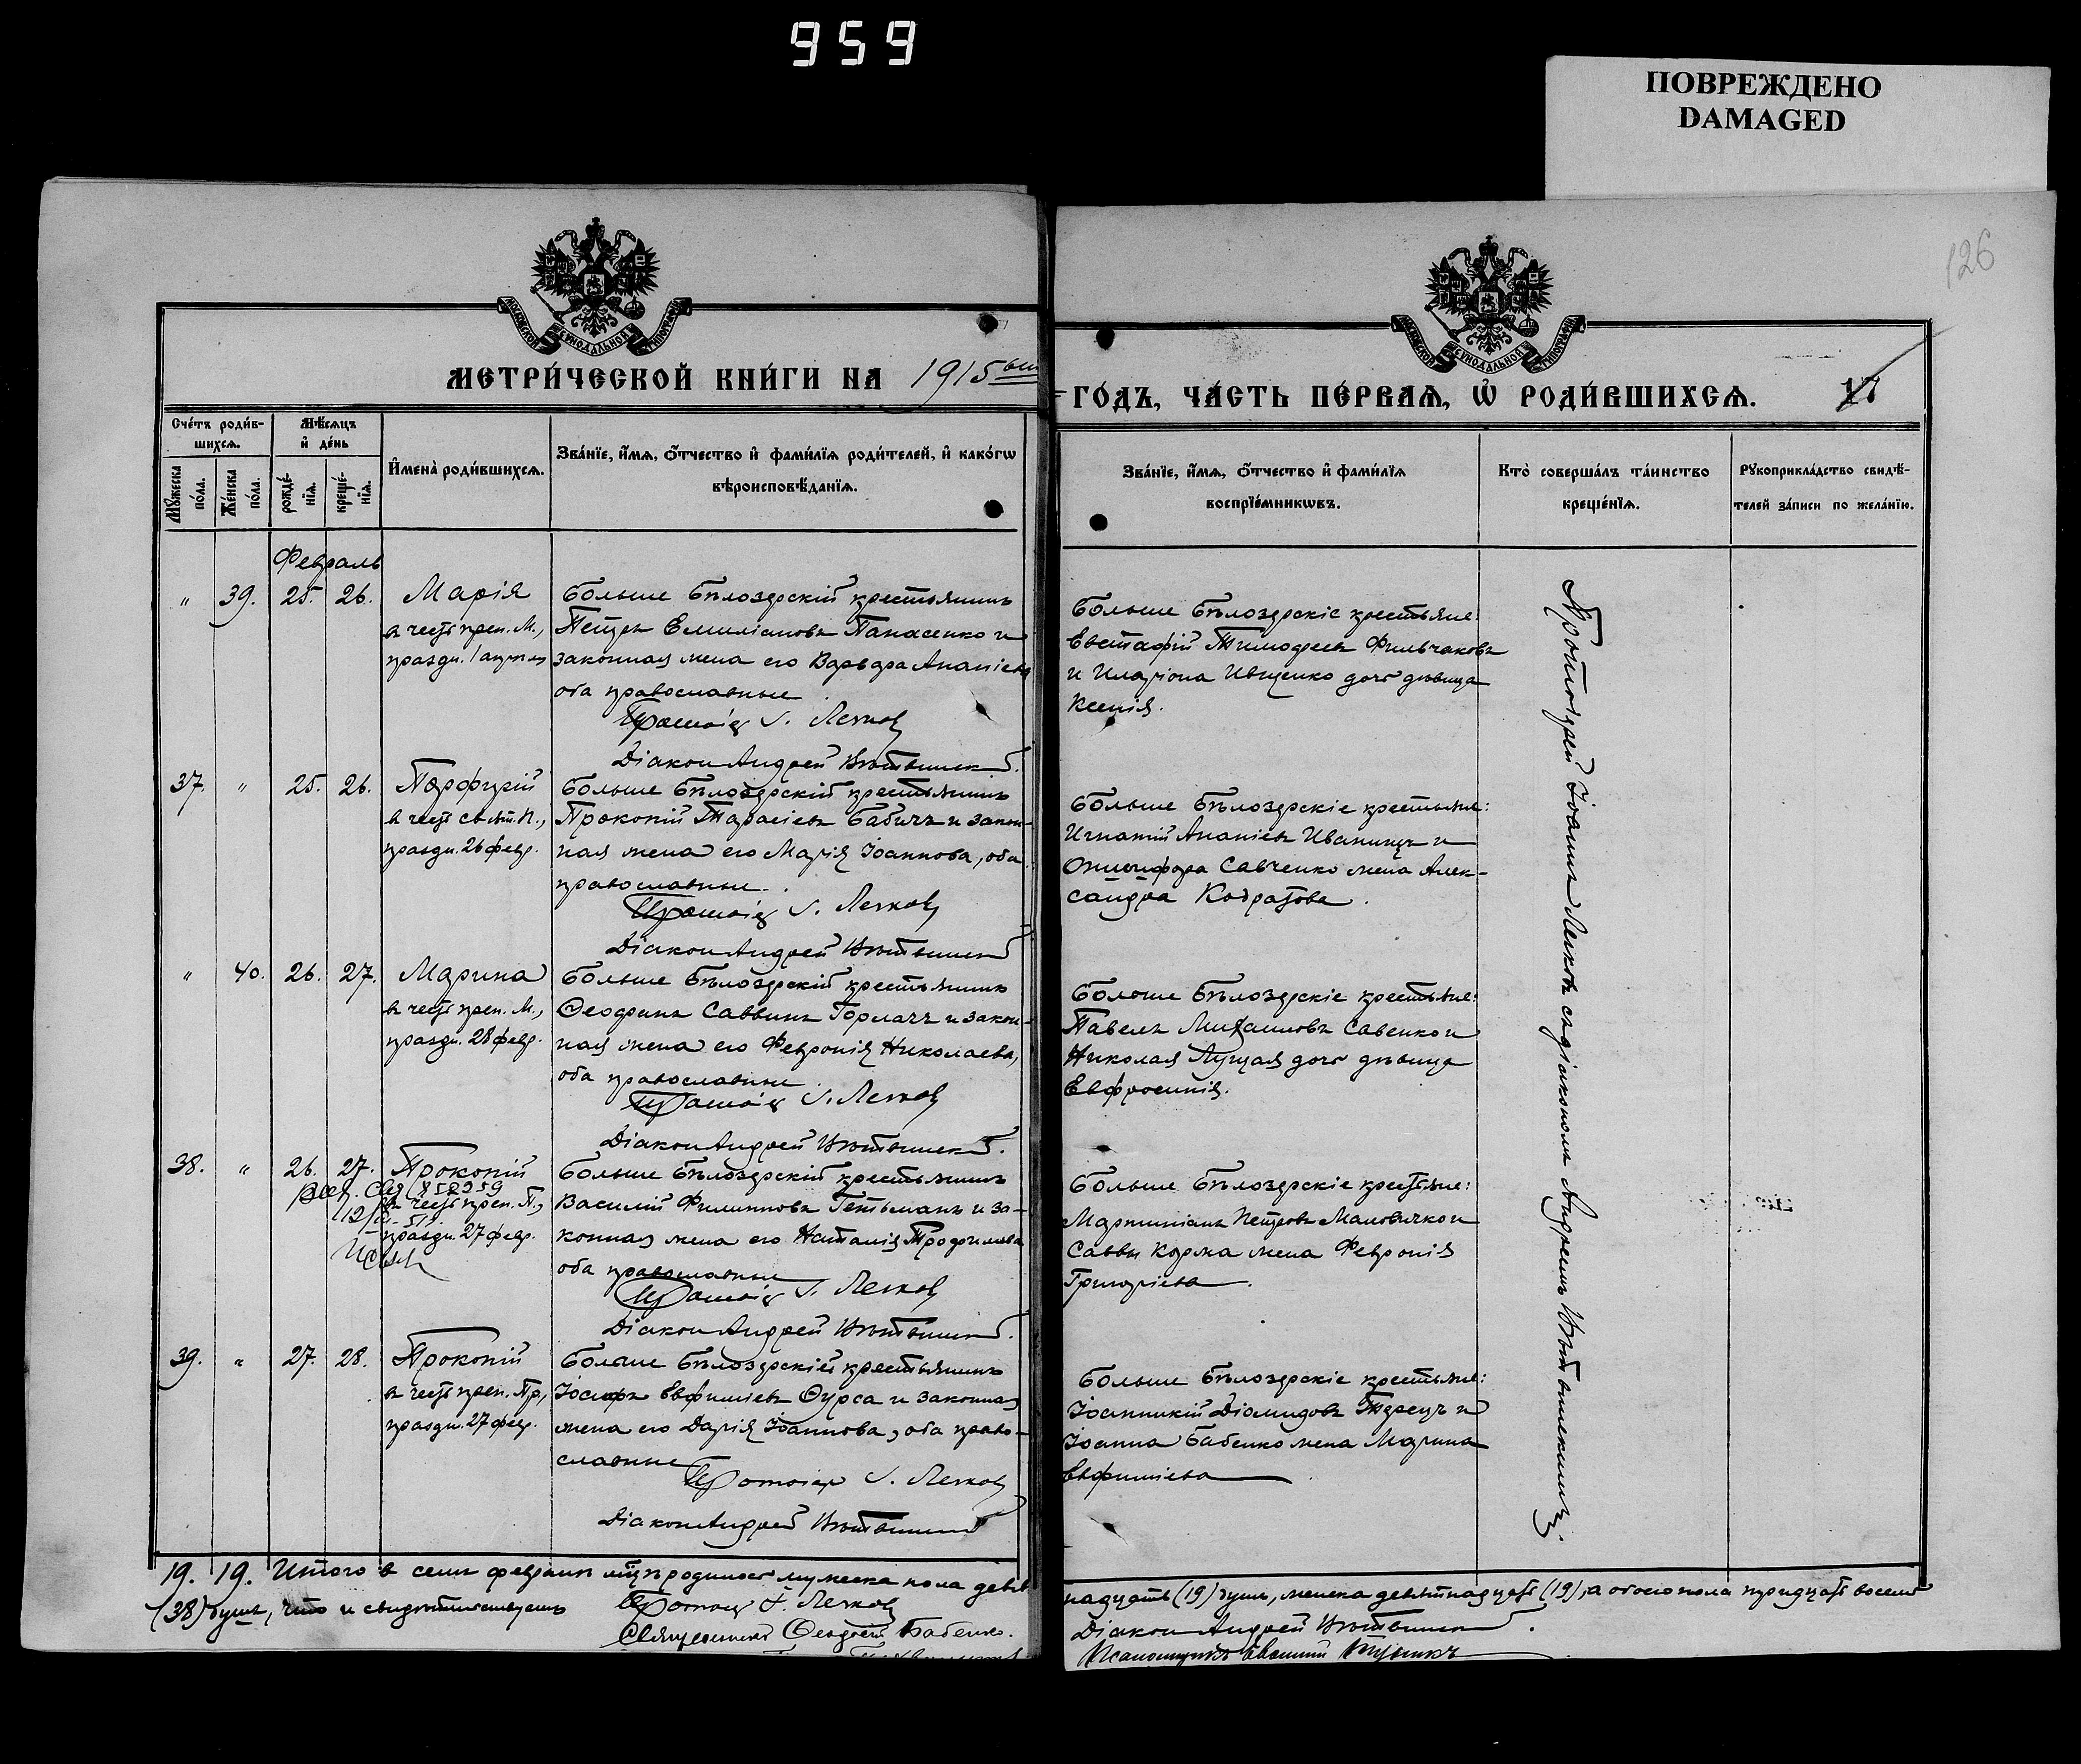 959
ПОВРЕЖДЕНО
DAMAGED
126
МЕТРИ́ЧЕСКОЙ КНИ́ГИ НА 1915
ГО́ДЪ, ЧА́СТЬ ПЕ́РВАѦ, Ѡ҆ РОДИ́ВШИХСѦ.
Сче́тъ роди́в-
шихсѧ.
Мꙋ́жеска по́ла.
Же́нска по́ла.
Мѣ́сѧцъ
и҆ де́нь
рожде́-
нїѧ.
креще́-
нїѧ.
И҆мена̀ роди́вшихсѧ.
Зва́нїе, и҆́мѧ, ѻ҆́тчество и҆ фами́лїѧ роди́телей, и҆ како́гѡ
вѣроисповѣ́данїѧ.
Зва́нїе, и҆́мѧ, ѻ҆́тчество и҆ фами́лїѧ
воспрїе́мникѡвъ.
Кто̀ соверша́лъ та́инство
креще́нїѧ.
Рꙋкоприкла́дство свидѣ́-
телей за́писи по жела́нїю.
МОСКОВСКОЙ СѴНОДАЛЬНОЙ ТИПОГРАФІИ
МОСКОВСКОЙ СѴНОДАЛЬНОЙ ТИПОГРАФІИ
Февраль
" 39. 25. 26. Марія
в честь преп. М.,
праздн. 1 апрѣля
Больше Бѣлозерскій крестьянинъ
Петръ Емиліановъ Панасенко и
законная жена его Варвара Ананіева
оба православные
Протоіер І. Легковъ
Діаконъ Андрей
Больше Бѣлозерскіе крестьяне:
Евстафій Тимофеевъ Фильчаковъ
и Иларіона Ивщенко дочь дѣвица
Ксенія.
37. " 25. 26. Порфирій
в честь свят. П.,
праздн. 26 февр.
Больше Бѣлозерскій крестьянинъ
Прокопій Тарасіевъ Бабичъ и закон-
ная жена его Марія Іоаннова, оба
православные.
Протоіер І. Легковъ
Діаконъ Андрей
Больше Бѣлозерскіе крестьяне:
Игнатій Ананіевъ Иваница и
Онисифора Савченко жена Алек-
сандра Кодратова.
" 40. 26. 27. Марина
в честь преп. М.,
праздн. 28 февр.
Больше Бѣлозерскій крестьянинъ
Ѳеофанъ Саввинъ Горлачъ и закон-
ная жена его Февронія Николаева,
оба православные
Протоіер І. Легковъ
Діаконъ Андрей
Больше Бѣлозерскіе крестьяне:
Павелъ Михаиловъ Савенко и
Николая Луцая дочь дѣвица
Евфросинія.
38. " 26. 27. Прокопій
в честь преп. П.,
праздн. 27 февр.
Больше Бѣлозерскій крестьянинъ
Василій Филипповъ Гетьманъ и за-
конная жена его Наталія Трофимова
оба православные
Протоіер І. Легковъ
Діаконъ Андрей
Больше Бѣлозерскіе крестьяне:
Мартиніанъ Петровъ Маловичко и
Саввы Коржа жена Февронія
Григоріева.
39. " 27. 28. Прокопій
в честь преп. Пр.,
праздн. 27 февр.
Больше Бѣлозерскій крестьянинъ
Іосифъ Евфиміевъ Ѳурса и законная
жена его Дарія Іоаннова, оба право-
славные
Протоіер І. Легковъ
Діаконъ Андрей
Больше Бѣлозерскіе крестьяне:
Іоанникій Діомидовъ Терецъ и
Іоанна Бабенко жена Марина
Евфиміева
Протоіерей Іоаннъ Легковъ съ діакономъ Андреемъ
19. 19. Итого в семъ февралѣ м҃цѣ родилось мужеска пола девят
надцать (19) душъ, женска девятнадцать (19), а обоего пола тридцать восемь
(38) душъ, что и свидѣтельствуемъ Протоіер І. Легковъ
Священникъ Ѳеодосій Бабенко.
Діаконъ Андрей
Псаломщикъ Евгеній